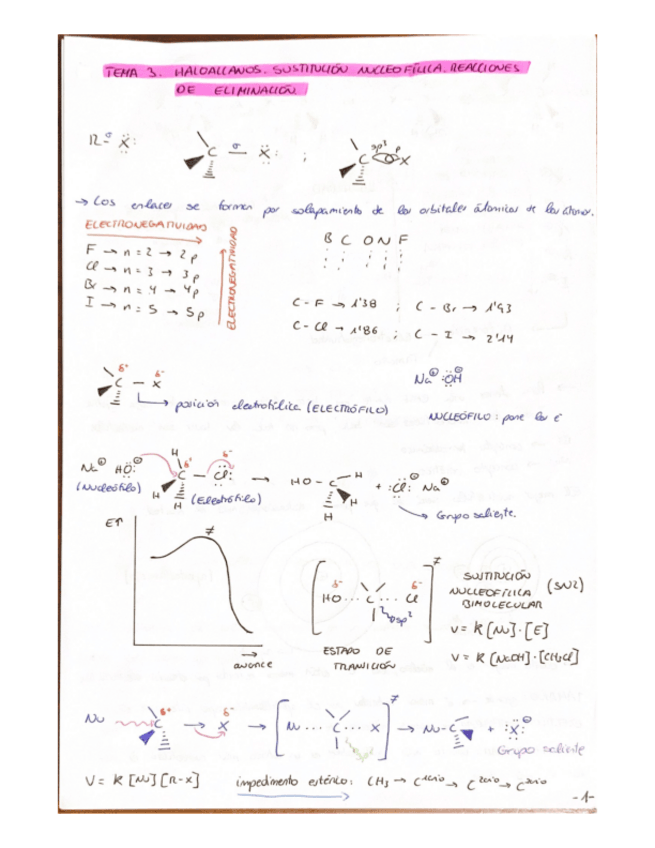 TEMA 3. HALOALCANOS. SUSTITUCIÓN NUCLEOFÍLICA. REACCIONES
DE ELIMINACIÓN
R σ X
C σ X ;
C sp³ p X
→ Los enlaces se forman por solapamiento de los orbitales atómicos de los átomos.
ELECTRONEGATIVIDAD
F → n = 2 → 2p
Cl → n = 3 → 3p
Br → n = 4 → 4p
I → n = 5 → 5p
ELECTRONEGATIVIDAD
B C O N F
C - F → 1'38 ; C - Br → 1'93
C - Cl → 1'86 ; C - I → 2'14
δ+ δ-
C - X
→ posición electrofílica (ELECTRÓFILO)
Na⊕ :ÖH⊖
NUCLEÓFILO: pone los é
Na⊕ HÖ:⊖ H δ+ C δ- Cl: → HO - C - H + :Cl:⊖ Na⊕
(Nucleófilo) H H (Electrófilo) H H
→ Grupo saliente.
E↑
≠
avance
δ- δ-
HO ··· C ··· Cl ≠
sp²
ESTADO DE
TRANSICIÓN
SUSTITUCIÓN
NUCLEOFÍLICA (SN2)
BIMOLECULAR
V = K [Nu]·[E]
V = K [NaOH]·[CH3Cl]
Nu δ+ C → δ- X → [Nu ··· C ··· X]≠ → Nu-C + :X:⊖
Grupo saliente
V = K [Nu][R-X]
impedimento estérico: CH3 → C1ario → C2ario → C3ario
-1-